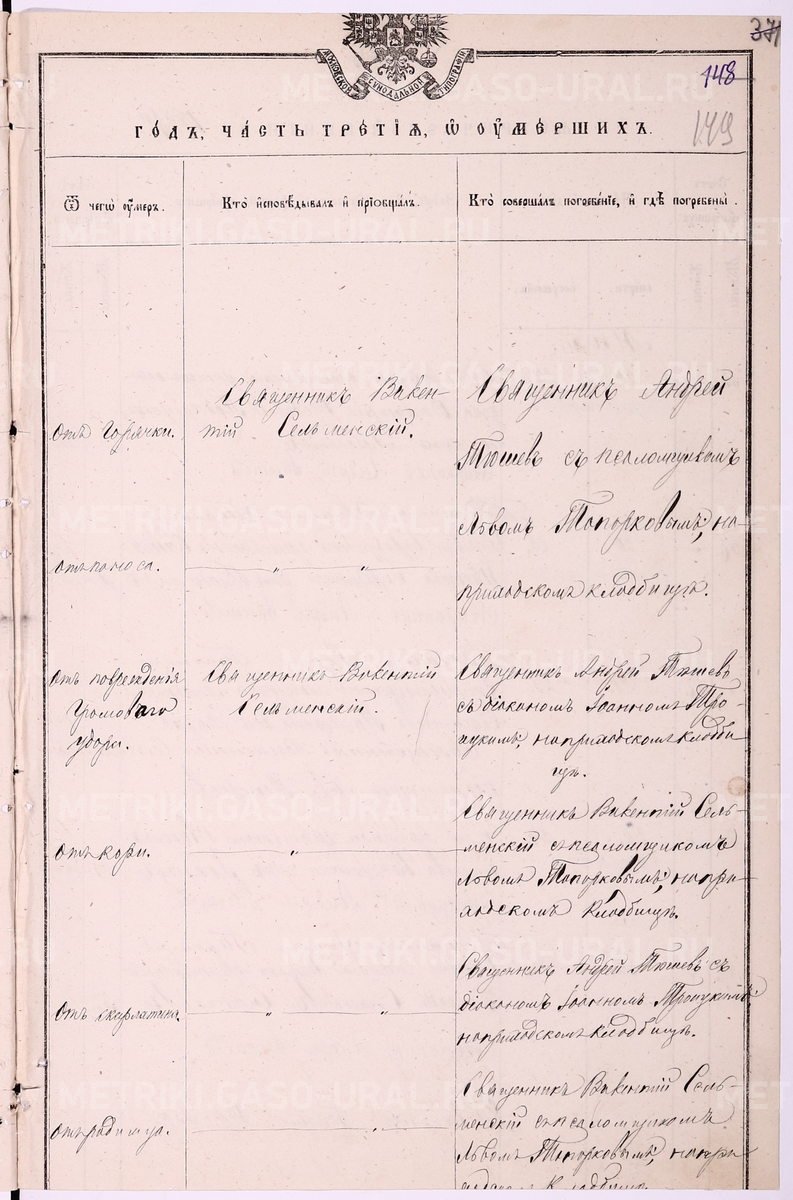 371
148
149
МОСКОВСКОЙ СѴНОДАЛЬНОЙ ТИПОГРАФІИ
ГО́ДЪ, ЧА́СТЬ ТРЕ́ТІѦ, Ѡ҆ ОУ҆МЕ́РШИХЪ.
Ѿ чегѡ̀ оу҆́меръ.
Кто̀ и҆сповѣ́дывалъ и҆ прїѡбща́лъ.
Кто̀ соверша́лъ погребе́нїе, и҆ гдѣ̀ погребены̀.
отъ горячки.
Священникъ Викен-
тій Сельменскій.
Священникъ Андрей
Тюшевъ съ псаломщикомъ
Львомъ Топорковымъ, на
приходскомъ кладбищѣ.
отъ поноса.
— „ — „ —
отъ повреждения
громоваго
удара.
Священникъ Викентій
Сельменскій.
Священникъ Андрей Тюшевъ
съ діакономъ Іоанномъ Тро-
ицкимъ, на приходскомъ кладби-
щѣ.
отъ кори.
— „ —
Священникъ Викентій Сель-
менскій съ псаломщикомъ
Львомъ Топорковымъ, на при-
ходскомъ кладбищѣ.
отъ скарлатины.
— „ — „ —
Священникъ Андрей Тюшевъ съ
діакономъ Іоанномъ Троицкимъ
на приходскомъ кладбищѣ.
отъ родимца.
— „ —
Священникъ Викентій Сель-
менскій съ псаломщикомъ
Львомъ Топорковымъ, на при
ходскомъ кладбищѣ
METRIKI.GASO-URAL.RU